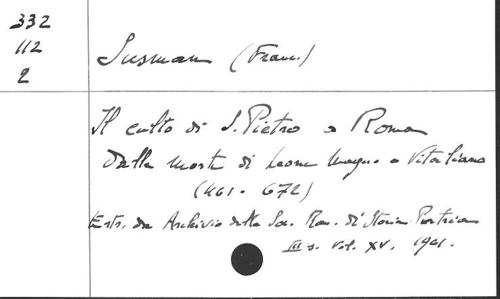 332
112
2
Susman (Franc.)
Il culto di S. Pietro a Roma
dalla morte di Leone Magno a Vitaliano
(461 - 672)
Estr. da Archivio della Soc. Rom. di Storia Patria
III s. Vol. XV. 1961.